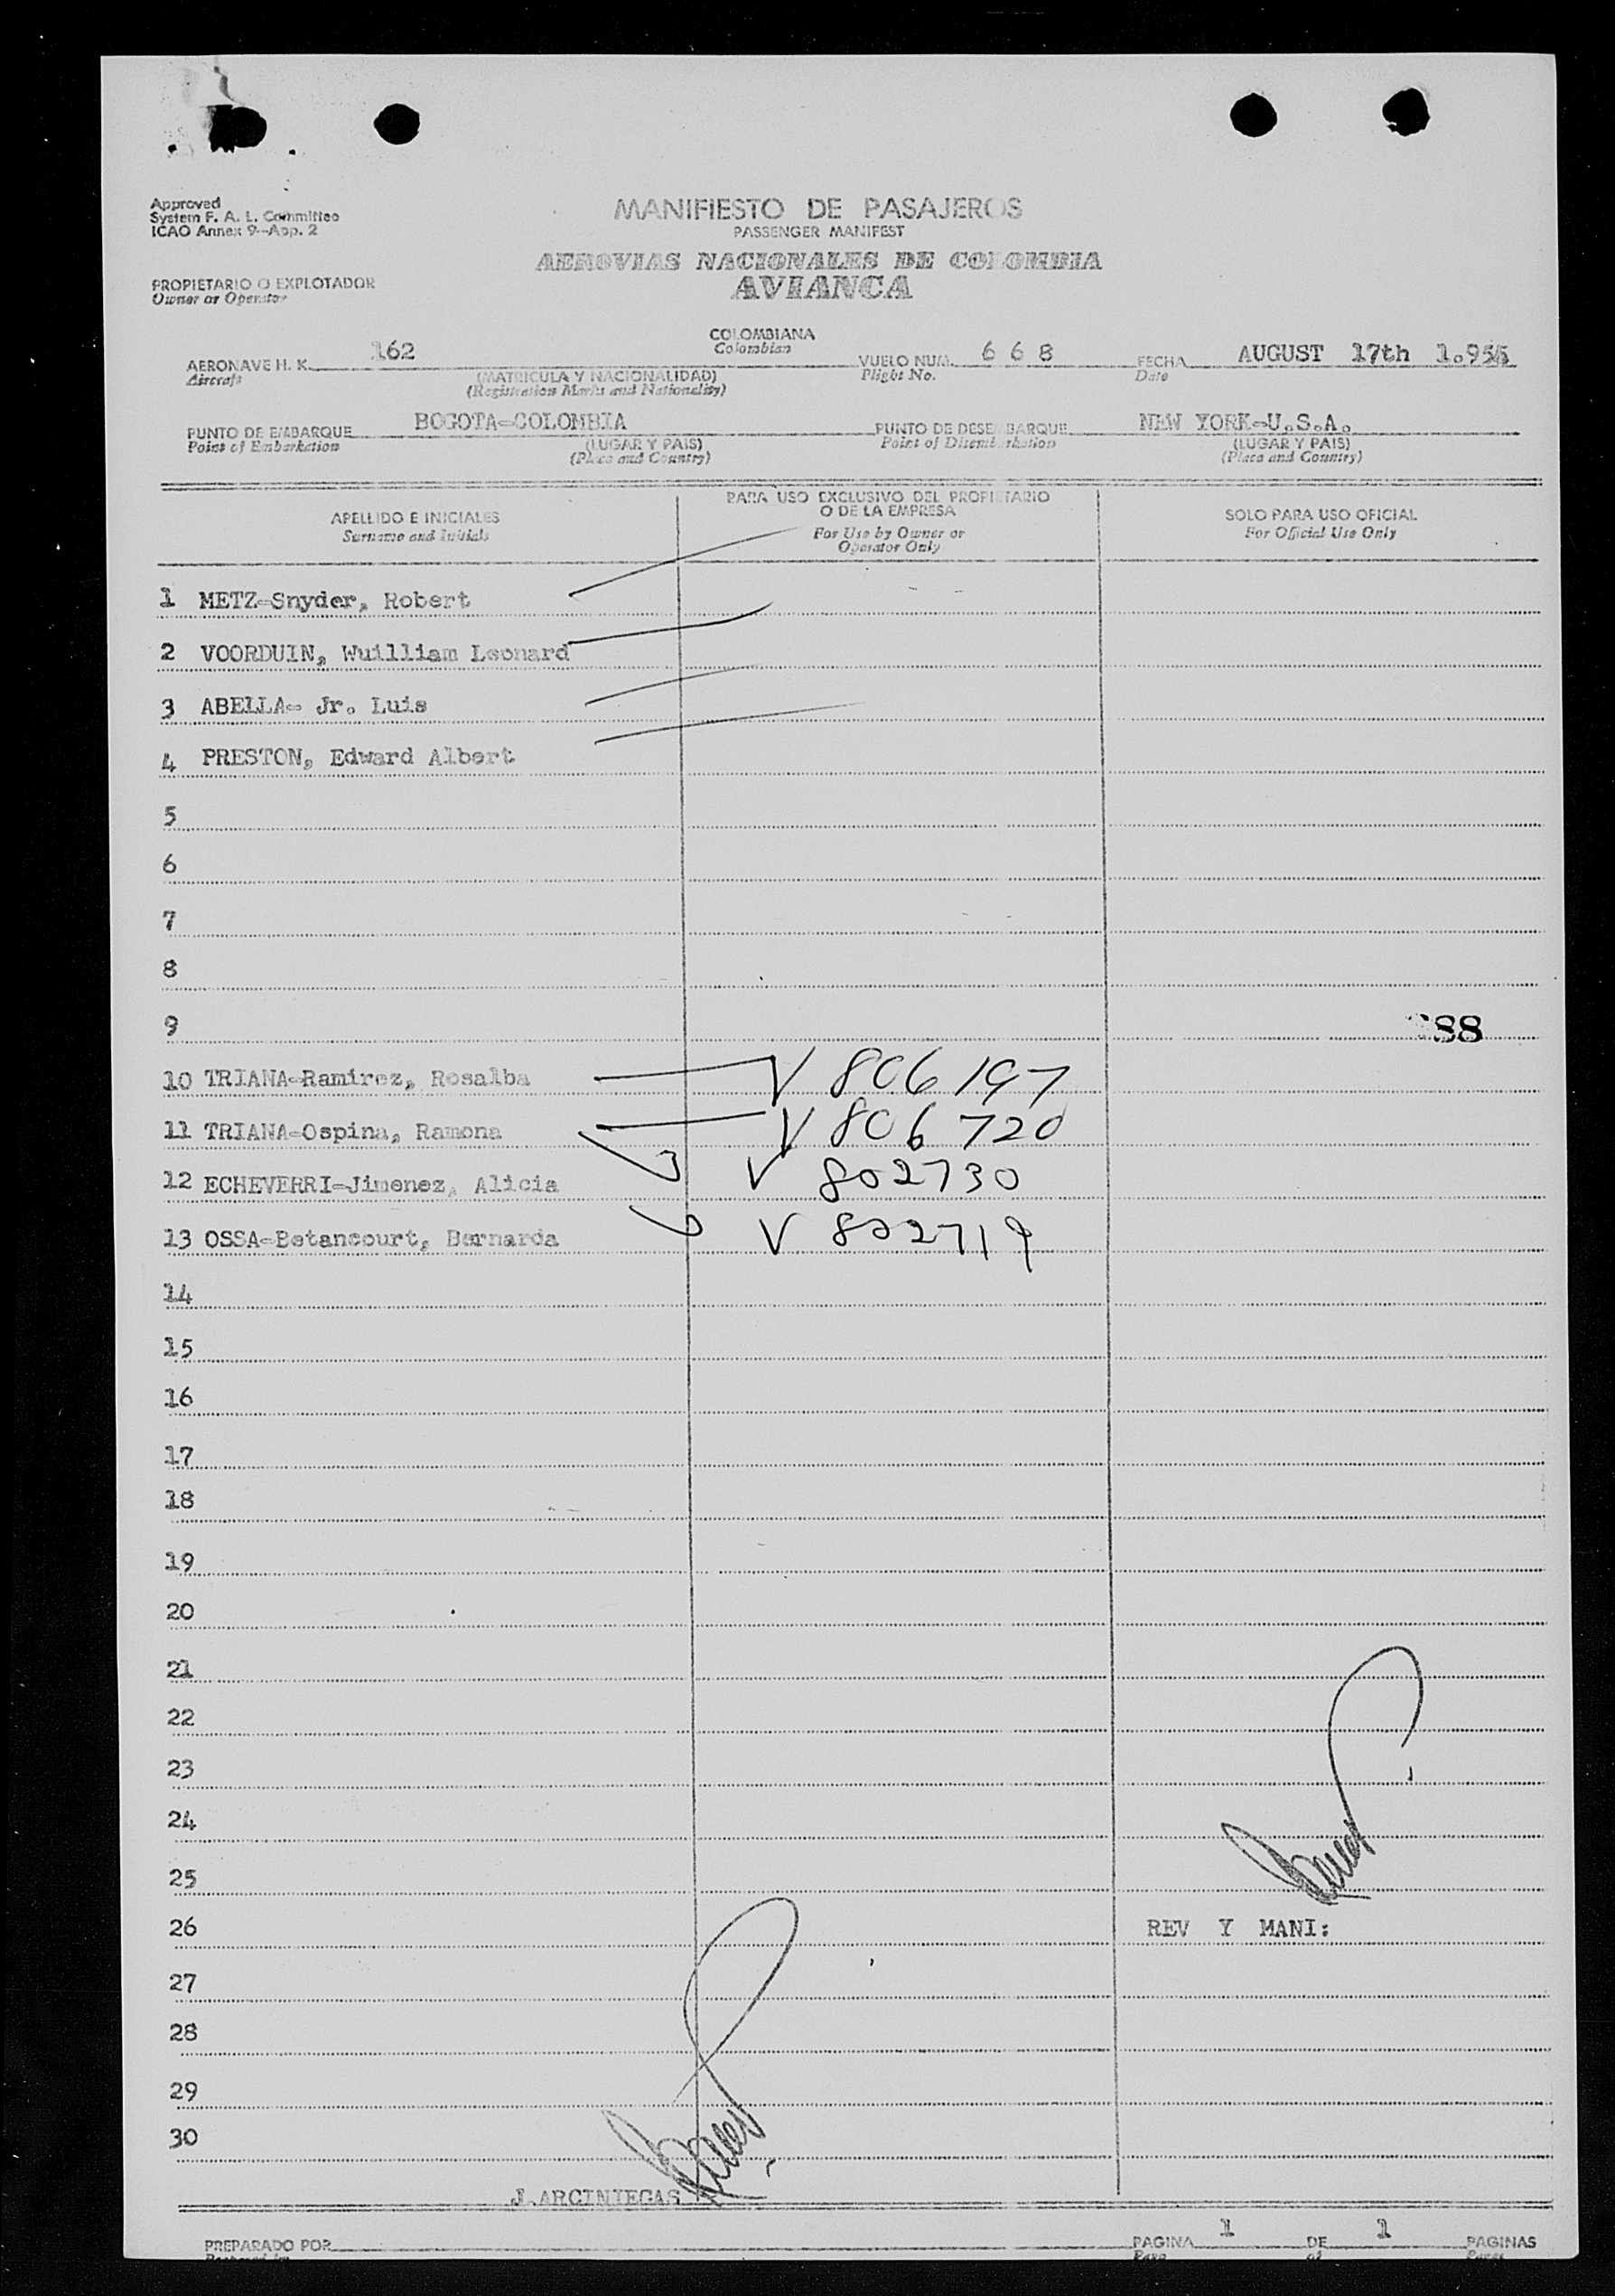 Approved
System F. A. L. Committee
ICAO Annex 9-App. 2
MANIFIESTO DE PASAJEROS
PASSENGER MANIFEST
AEROVIAS NACIONALES DE COLOMBIA
AVIANCA
PROPIETARIO O EXPLOTADOR
Owner or Operator
AERONAVE H. K. 162 COLOMBIANA VUELO NUM. 6 6 8 FECHA AUGUST 17th 1.955
Aircraft Colombian Flight No. Date
(MATRICULA Y NACIONALIDAD)
(Registration Marks and Nationality)
PUNTO DE EMBARQUE BOGOTA-COLOMBIA PUNTO DE DESEMBARQUE NEW YORK-U.S.A.
Point of Embarkation (LUGAR Y PAIS) Point of Disembarkation (LUGAR Y PAIS)
(Place and Country) (Place and Country)
APELLIDO E INICIALES
Surname and Initials
PARA USO EXCLUSIVO DEL PROPIETARIO
O DE LA EMPRESA
For Use by Owner or
Operator Only
SOLO PARA USO OFICIAL
For Official Use Only
1 METZ-Snyder, Robert
2 VOORDUIN, Wuilliam Leonard
3 ABELLA- Jr. Luis
4 PRESTON, Edward Albert
5
6
7
8
9 88
10 TRIANA-Ramirez, Rosalba V 806197
11 TRIANA-Ospina, Ramona V 806720
12 ECHEVERRI-Jimenez, Alicia V 802730
13 OSSA-Betancourt, Bernarda V 802719
14
15
16
17
18
19
20
21
22
23
24
25
26 REV Y MANI:
27
28
29
30
J.ARCINIEGAS
PREPARADO POR PAGINA 1 DE 1 PAGINAS